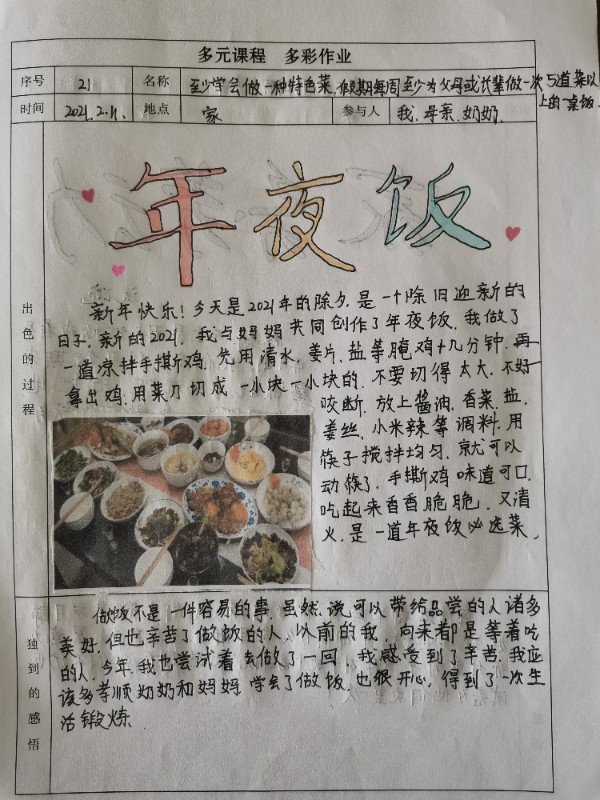 多元课程 多彩作业
序号 21 名称 至少学会做一种特色菜,假期每周至少为父母或长辈做一次5道菜以
上的一桌饭.
时间 2021.2.11. 地点 家 参与人 我.母亲.奶奶.
年夜饭
出色的过程
新年快乐!今天是2021年的除夕.是一个除旧迎新的
日子.新的2021.我与妈妈共同创作了年夜饭.我做了
一道凉拌手撕鸡.先用清水,姜片,盐等腌鸡十几分钟.再
拿出鸡.用菜刀切成一小块一小块的.不要切得太大.不好
咬断.放上酱油.香菜.盐.
姜丝.小米辣等调料.用
筷子搅拌均匀.就可以
动筷了.手撕鸡味道可口.
吃起来香香脆脆.又清
火.是一道年夜饭必选菜.
独到的感悟
做饭不是一件容易的事.虽然说可以带给品尝的人诸多
美好.但也辛苦了做饭的人.以前的我.向来都是等着吃
的人.今年.我也尝试着去做了一回.我感受到了辛苦.我应
该多孝顺奶奶和妈妈.学会了做饭.也很开心.得到了一次生
活锻炼.